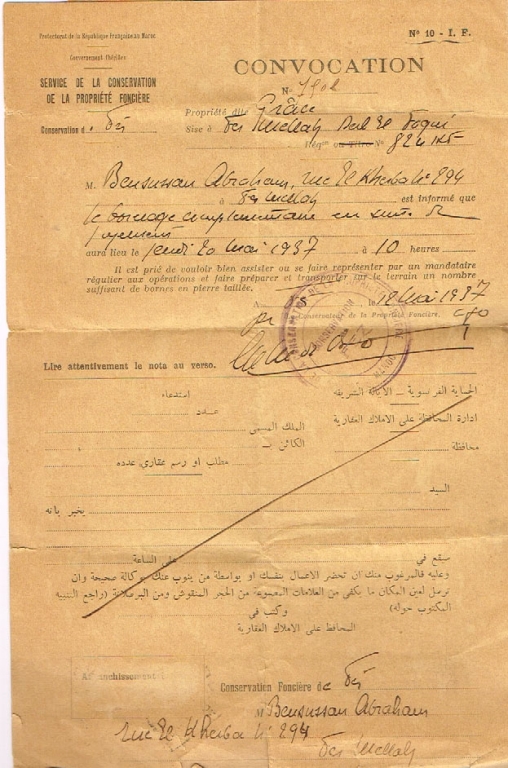 Protectorat de la République Française au Maroc
Gouvernement Chérifien
SERVICE DE LA CONSERVATION
DE LA PROPRIÉTÉ FONCIÈRE
Conservation de Fès
N° 10 - I. F.
CONVOCATION
N°
Propriété dite Grâce
Sise à Fès Mellah Bab El
Réqon ou Titre N°
M. Bensussan Abraham, rue El Kheiba N° 294
à Fès Mellah est informé que
le bornage complémentaire en suite de
jugement
aura lieu le jeudi 20 Mai 1937 à 10 heures
Il est prié de vouloir bien assister ou se faire représenter par un mandataire
régulier aux opérations et faire préparer et transporter sur le terrain un nombre
suffisant de bornes en pierre taillée.
A Fès, le 12 Mai 1937
Conservateur de la Propriété Foncière,
Lire attentivement le nota au verso.
الحماية الفرنسوية ــ الايالة الشريفة
ادارة المحافظة على الاملاك العقارية
محافظة
استدعاء
عدد
الملك المسمى
الكائن بـ
مطلب او رسم عقاري عدده
السيد
يخبر بانه
سيقع في
على الساعة
وعليه فالمرغوب منك ان تحضر الاعمال بنفسك او بواسطة من ينوب عنك بوكالة صحيحة وان
ترسل لعين المكان ما يكفي من العلامات المصنوعة من الحجر المنقوش ومن البرصلانة (راجع التنبيه
المكتوب حوله)
وكتب في
المحافظ على الاملاك العقارية
Affranchissement
Conservation Foncière de Fès
M Bensussan Abraham
rue El Kheiba N° 294
Fès Mellah